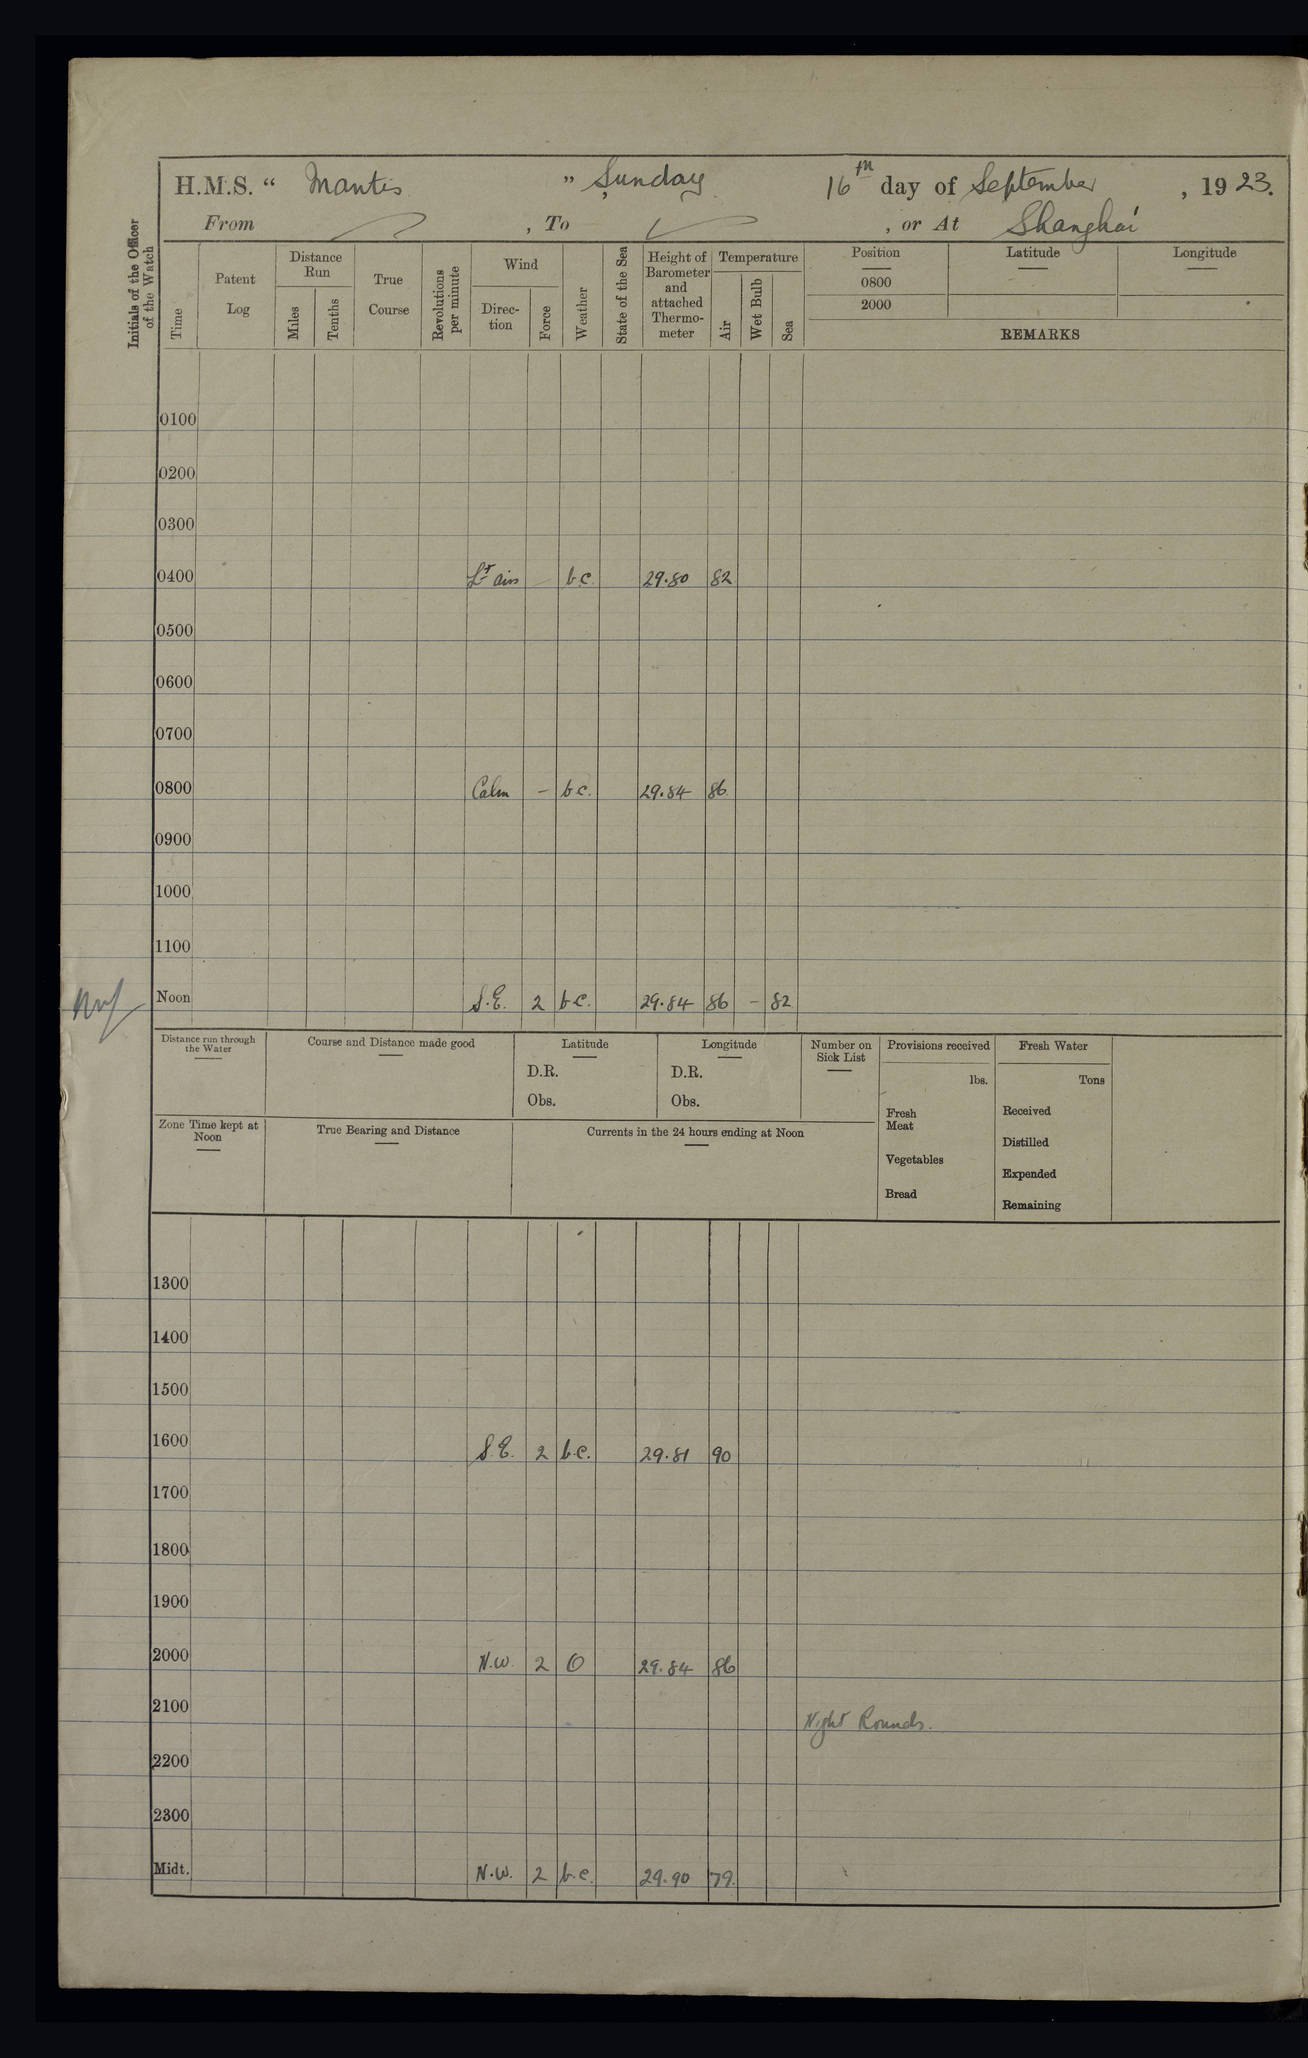 H.M.S. “ Mantis ” Sunday 16th day of September , 1923.
From , To , or At Shanghai
Initials of the Officer of the Watch
Time
Patent Log
Distance Run
Miles
Tenths
True Course
Revolutions per minute
Wind
Direc-tion
Force
Weather
State of the Sea
Height of Barometer and attached Thermo-meter
Temperature
Air
Wet Bulb
Sea
Position
0800
2000
Latitude
Longitude
REMARKS
0100
0200
0300
0400 Lt airs – b.c. 29.80 82
0500
0600
0700
0800 Calm – b.c. 29.84 86
0900
1000
1100
Noon S.E. 2 b.c. 29.84 86 – 82
Distance run through the Water
Course and Distance made good
Latitude
D.R.
Obs.
Longitude
D.R.
Obs.
Number on Sick List
Provisions received
lbs.
Fresh Meat
Vegetables
Bread
Fresh Water
Tons
Received
Distilled
Expended
Remaining
Zone Time kept at Noon
True Bearing and Distance
Currents in the 24 hours ending at Noon
1300
1400
1500
1600 S.E. 2 b.c. 29.81 90
1700
1800
1900
2000 N.W. 2 O 29.84 86
2100 Night Rounds.
2200
2300
Midt. N.W. 2 b.c. 29.90 79.